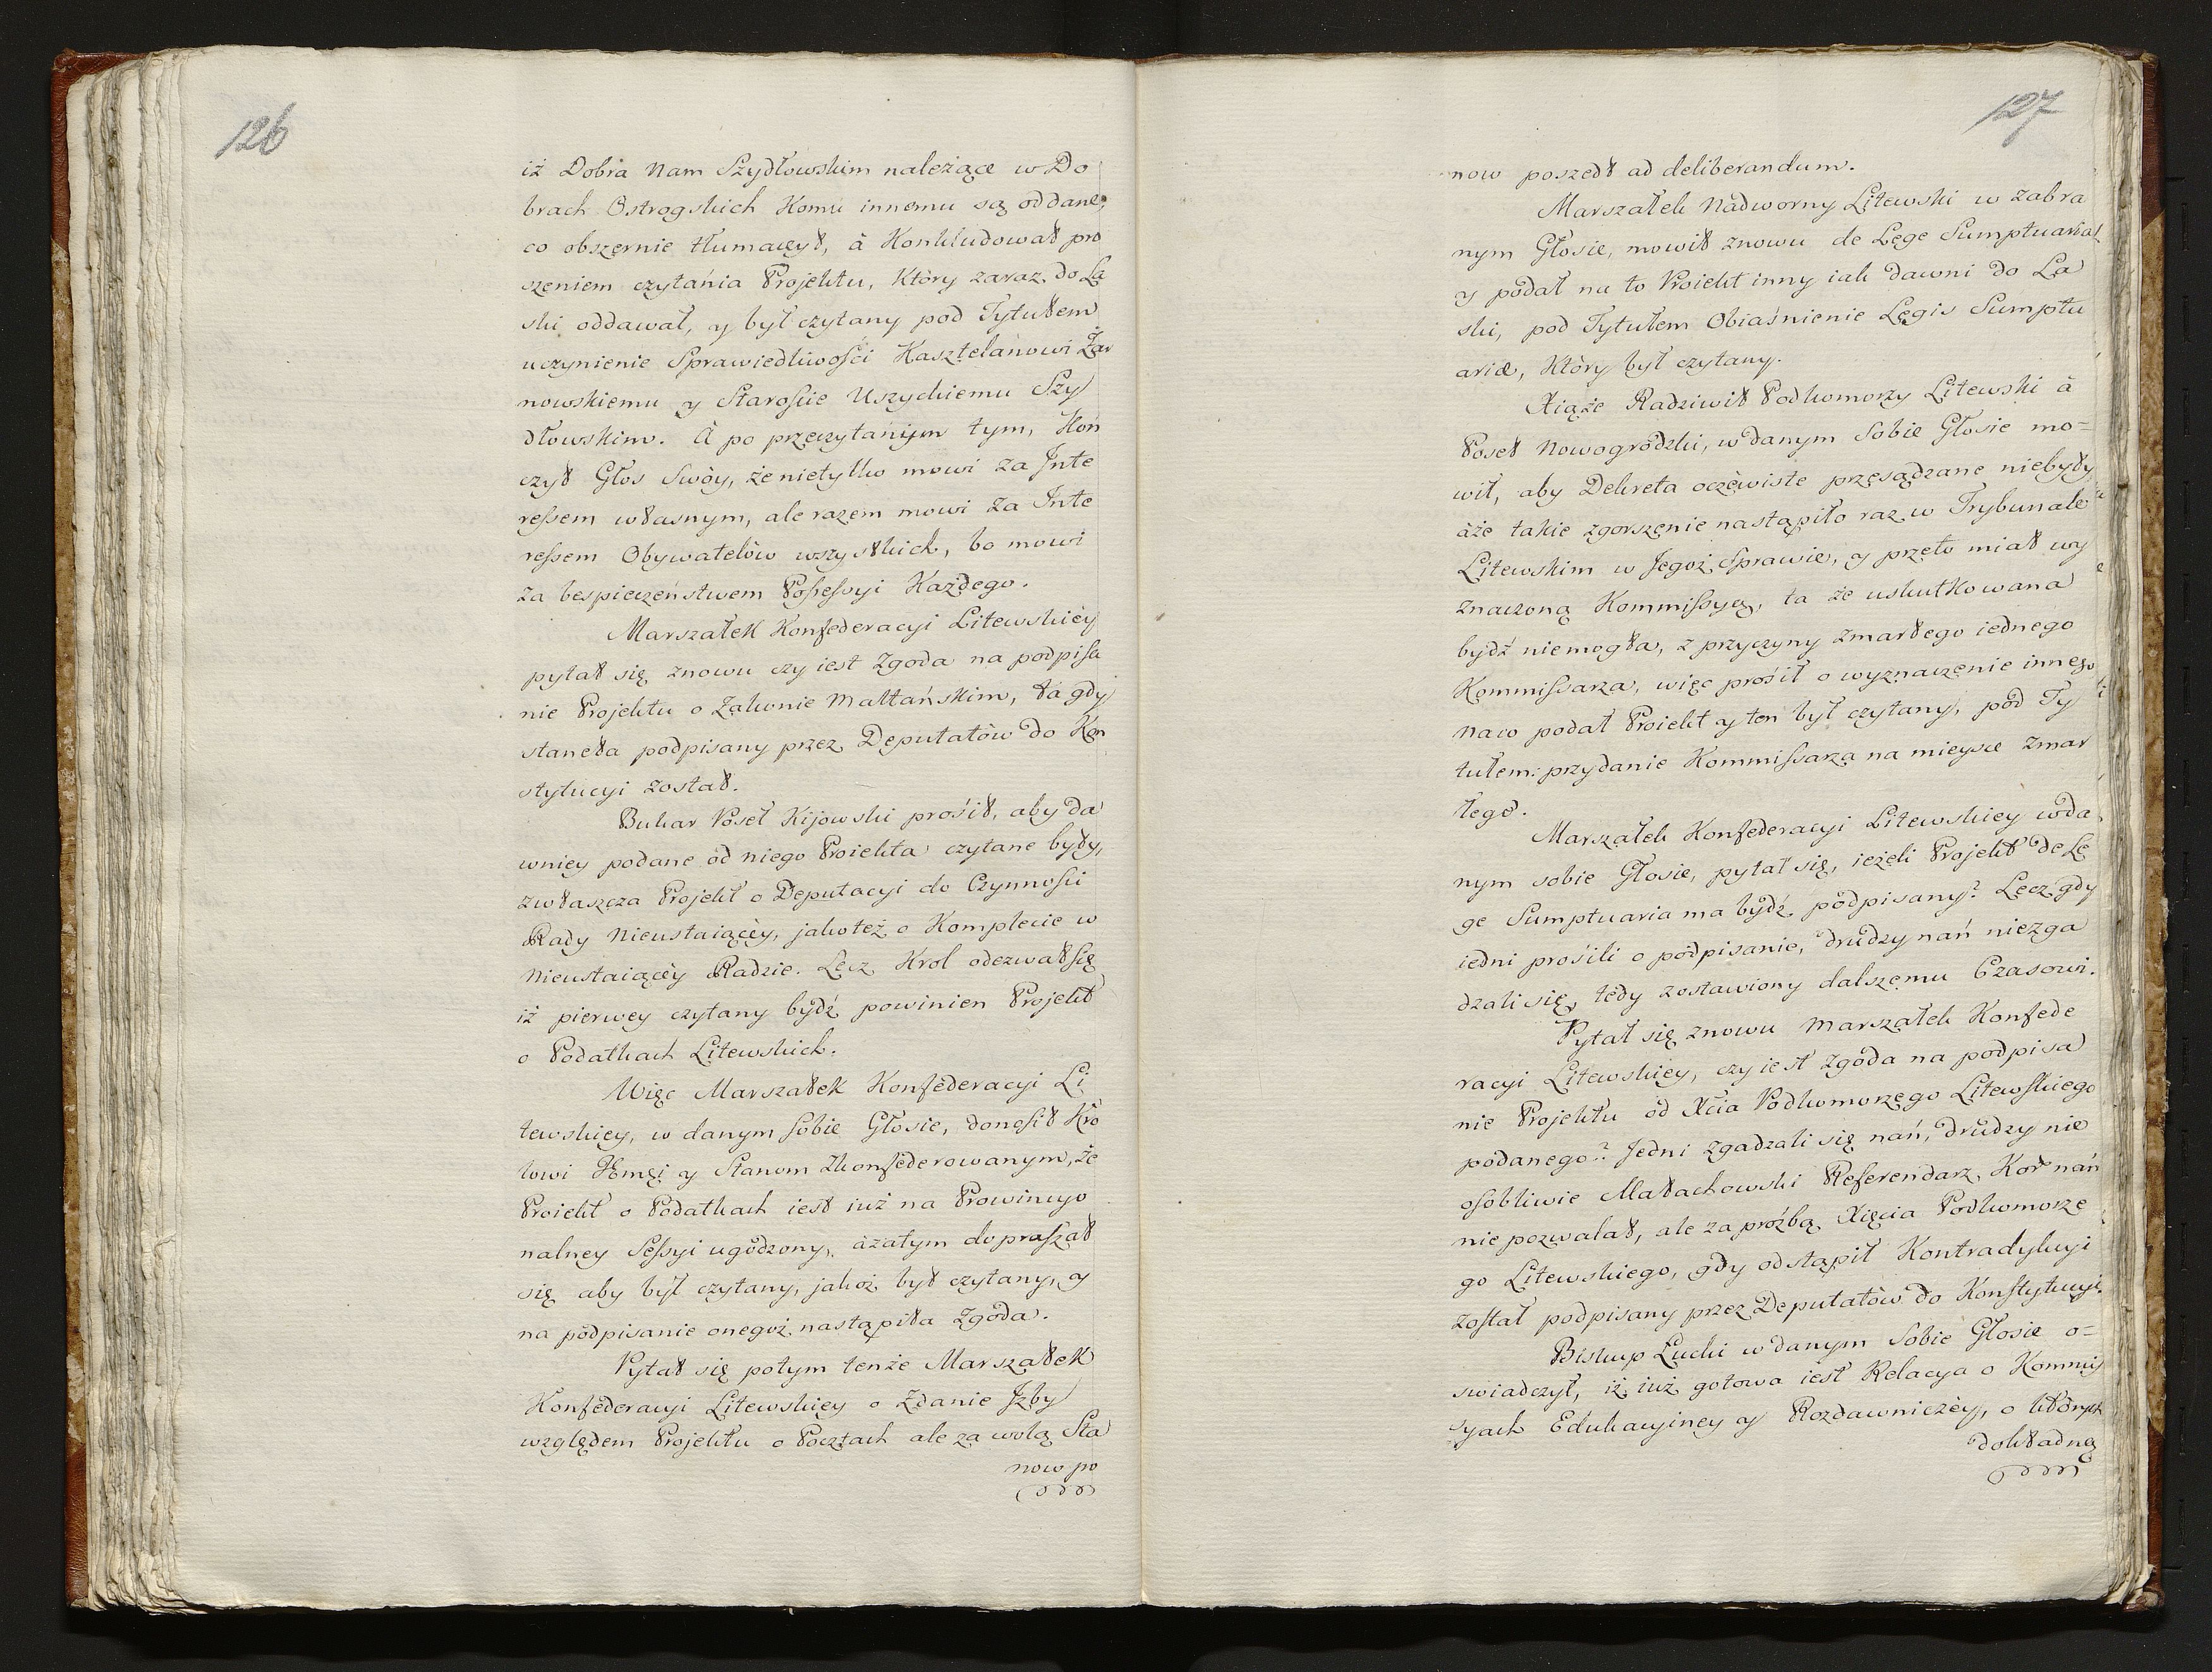 126
iż Dobra Nam Szydłowskim należące w Do
brach Ostrogskich Komu innemu są oddane,
co obszernie tłumaczył, à Konkludował pro
szeniem czytania Projektu, Który zaraz do La
ski oddawał, y był czytany pod Tytułem
uczynienie Sprawiedliwości Kasztelanowi Żar
nowskiemu y Starościе Uszyckiemu Szy
dłowskim. à po przeczytaniym tym, Koń
czył Głos Swóy, że nietylko mowi za Inte
ressem własnym, ale razem mowi za Inte
ressem Obywatelów wszystkich, bo mowi
za bespieczeństwem Possessyi Każdego.
Marszałek Konfederacyi Litewskiéy
pytał się znowu czy iest Zgoda na podpisa
nie Projektu o Zakonie Maltańskim, ta gdy
staneła podpisany przez Deputatów do Kon
stytucyi został.
Bukar Poseł Kijowski prosił, aby da
wniey podane od niego Proiekta czytane były,
zwłaszcza Projekt o Deputacyi do Czynności
Rady Nieustaiącéy, jakoteż o Komplecie w
Nieustaiącéy Radzie. Lecz Krol odezwał się
iż pierwey czytany bydź powinien Projekt
o Podatkach Litewskich.
Więc Marszałek Konfederacyi Li
tewskiey, w danym sobie Głosie, donosił Kró
lowi Jmci y Stanom Zkonfederowanym, że
Proiekt o Podatkach iest iuż na Prowincyo
nalney Sessyi ugodzony, àzatym dopraszał
się aby był czytany, jakoż był czytany, y
na podpisanie onegoż nastąpiła Zgoda.
Pytał się potym tenże Marszałek
Konfederacyi Litewskiey o Zdanie Jzby
względem Projektu o Pocztach ale za wolą Sta
now po
127
now poszedł ad deliberandum.
Marszałek Nadworny Litewski w zabra
nym Głosie, mowił znowu de Lege Sumptuaria,
y podał na to Proiekt inny iak dawni do La
ski, pod Tytułem Obiaśnienie Legis Sumptu
ariæ, Który był czytany.
Xiąże Radziwił Podkomorzy Litewski à
Poseł Nowogródzki, w danym Sobie Głosie mo=
wił, aby Dekreta oczéwiste przesądzane niebyły,
àże takie zgorszenie nastąpiło raz w Trybunale
Litewskim w Jegoż Sprawie, y przeto miał wy
znaczoną Kommissyą, ta że uskutkowana
bydź niemogła, z przyczyny zmarłego iednego
Kommissarza, więc prosił o wyznaczenie innego
naco podał Proiekt y ten był czytany, pod Ty
tułem: przydanie Kommissarza na mieysce zmar
łego.
Marszałek Konfederacyi Litewskiey w da
nym sobie Głosie, pytał się, ieżeli Projekt de Le
ge Sumptuaria ma bydź podpisany? Lecz gdy
iedni prosili o podpisanie, drudzy nań niezga
dzali się, tedy zostawiony dalszemu Czasowi.
Pytał się znowu Marszałek Konfede
racyi Litewskiey, czy iest Zgoda na podpisa
nie Projektu od Xcia Podkomorzego Litewskiego
podanego? Jedni zgadzali się nań, drudzy nie
osobliwie Małachowski Referendarz Kor nań
nie pozwalał, ale za prożbą Xięcia Podkomorze
go Litewskiego, gdy odstąpił Kontradykcyi
został podpisany przez Deputatów do Konstytucyi.
Biskup Łucki w danym Sobie Głosie o=
swiadczył, iż iuż gotowa iest Relacya o Kommis
syach Edukacyiney y Rozdawniczéy, o których
dokładną